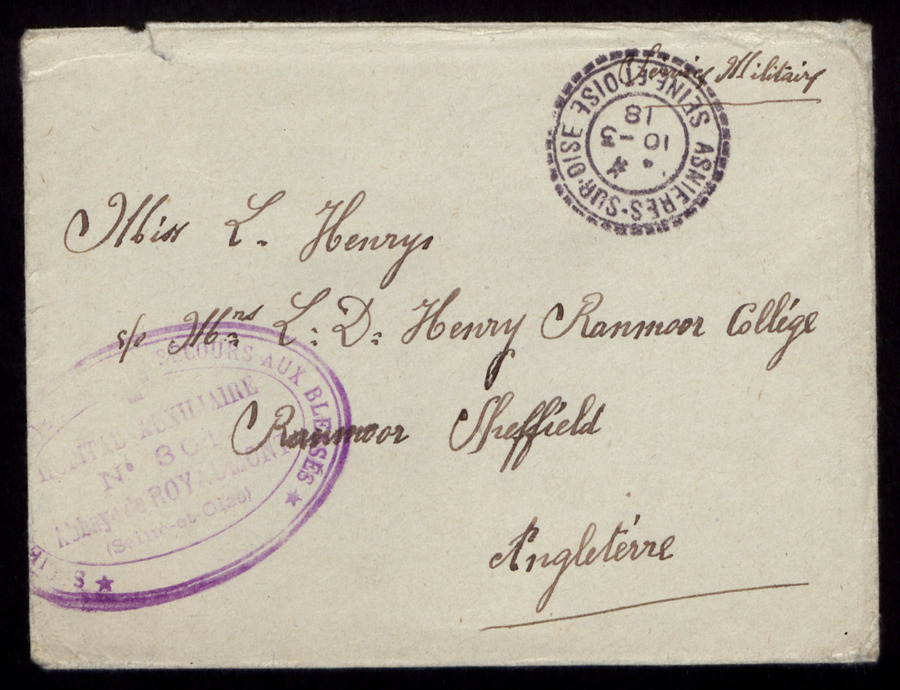 Service Militaire
ASNIERES-SUR-OISE
SEINE-ET-OISE
10 - 3
18
Miss L. Henry
c/o Mrs L. D. Henry Ranmoor Collége
Ranmoor Sheffield
Angletérre
SECOURS AUX BLESSÉS
AUXILIAIRE
No 301
Abbaye de ROYAUMONT
(Seine-et-Oise)